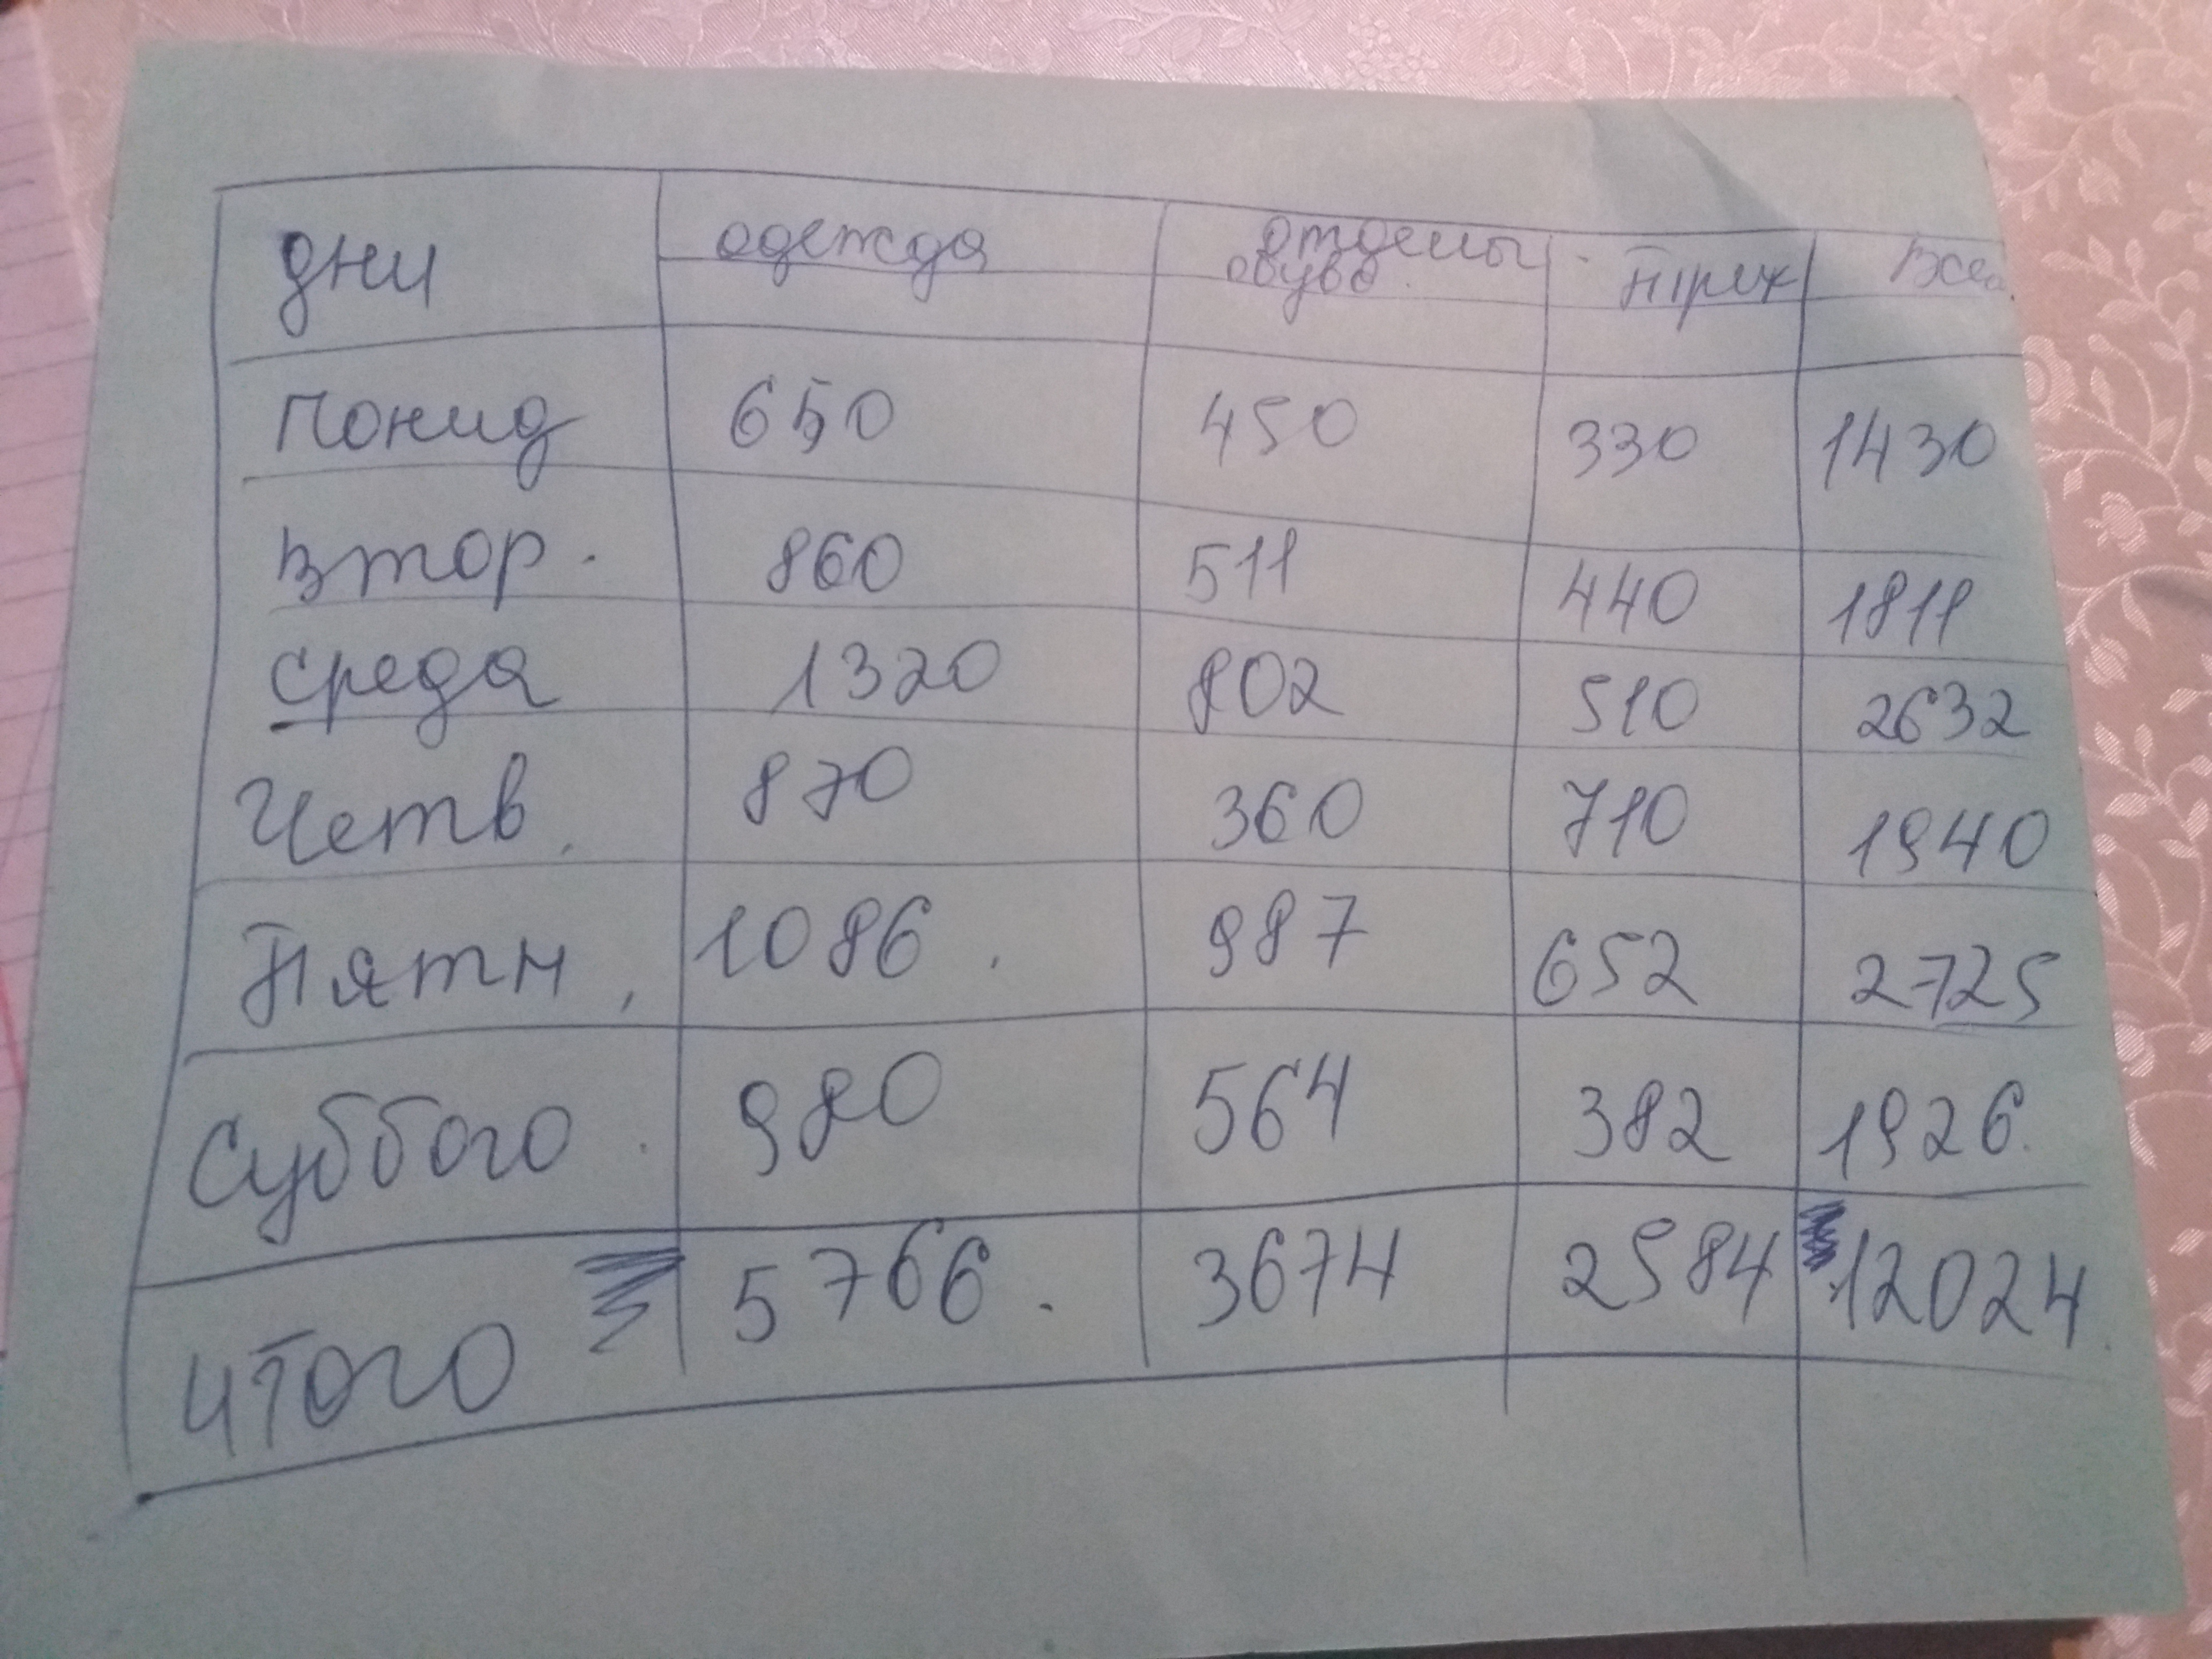 дни одежда отделы обувь трик Всего
понид 650 450 330 1430
втор. 860 511 440 1811
среда 1320 802 510 2632
Четв. 870 360 710 1940
Пятн. 1086. 987 652 2725
Суббото 980 564 382 1926.
итого 5766. 3674 2584 12024